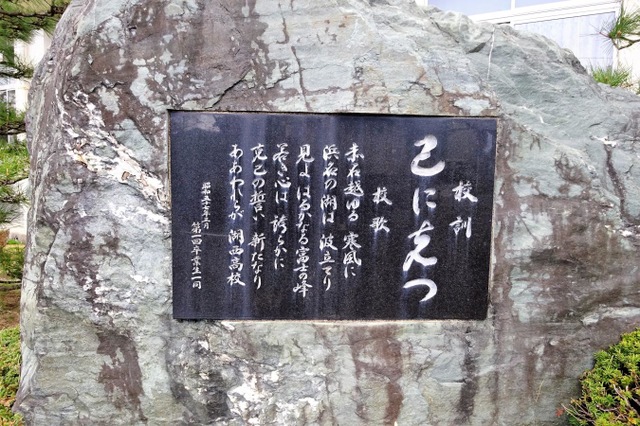 校訓
己に克つ
校歌
赤石越ゆる 寒風に
浜名の湖は 波立てり
見よ はるかなる 富士の峰
若き心は 誇らかに
克己の誓い 新たなり
ああ わが 湖西高校
昭和五十年三月
第二四卒業生一同